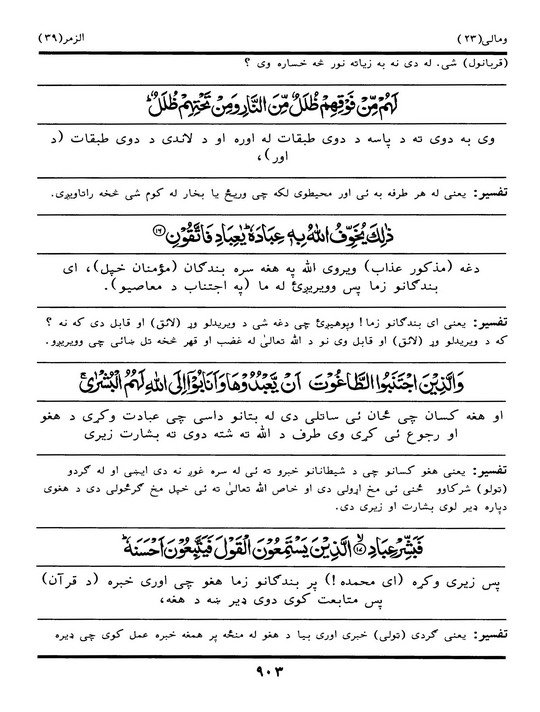 ومالی(۲۳)
الزمر(۳۹)
(قربانول) شی. له دی نه به زیاته نور څه خساره وی ؟
لَهُمْ مِّنْ فَوْقِهِمْ ظُلَلٌ مِّنَ النَّارِ وَمِنْ تَحْتِهِمْ ظُلَلٌ ؕ
وی به دوی ته د پاسه د دوی طبقات له اوره او د لاندی د دوی طبقات (د
اور)،
تفسیر: یعنی له هر طرفه به ئی اور محیطوی لکه چی وریځ یا بخار له کوم شی څخه راتاویږی.
ذٰلِكَ يُخَوِّفُ اللّٰهُ بِهٖ عِبَادَهٗ ؕ يٰعِبَادِ فَاتَّقُوْنِ ﴿۱۶﴾
دغه (مذکور عذاب) ویروی الله په هغه سره بندگان (مؤمنان خپل)، ای
بندگانو زما پس وویریږئ له ما (په اجتناب د معاصیو).
تفسیر: یعنی ای بندگانو زما! وپوهیږئ چی دغه شی د ویریدلو وړ (لائق) او قابل دی که نه ؟
که د ویریدلو وړ (لائق) او قابل وی نو د الله تعالیٰ له غضب او قهر څخه تل ښائی چی وویریږو.
وَالَّذِيْنَ اجْتَنَبُوا الطَّاغُوْتَ اَنْ يَّعْبُدُوْهَا وَاَنَابُوْٓا اِلَى اللّٰهِ لَهُمُ الْبُشْرٰى ۚ
او هغه کسان چی ځان ئی ساتلی دی له بتانو داسی چی عبادت وکړی د هغو
او رجوع ئی کړی وی طرف د الله ته شته دوی ته بشارت زیری
تفسیر: یعنی هغو کسانو چی د شیطانانو خبرو ته ئی له سره غوږ نه دی ایښی او له گردو
(ټولو) شرکاوو څنی ئی مخ اړولی دی او خاص الله تعالیٰ ته ئی خپل مخ گرځولی دی د هغوی
دپاره ډیر لوی بشارت او زیری دی.
فَبَشِّرْ عِبَادِ ﴿۱۷﴾ الَّذِيْنَ يَسْتَمِعُوْنَ الْقَوْلَ فَيَتَّبِعُوْنَ اَحْسَنَهٗ ؕ
پس زیری وکړه (ای محمده !) پر بندگانو زما هغو چی اوری خبره (د قرآن)
پس متابعت کوی دوی ډیر ښه د هغه،
تفسیر: یعنی گردی (ټولی) خبری اوری بیا د هغو له منځه پر همغه خبره عمل کوی چی ډیره
۹۰۳